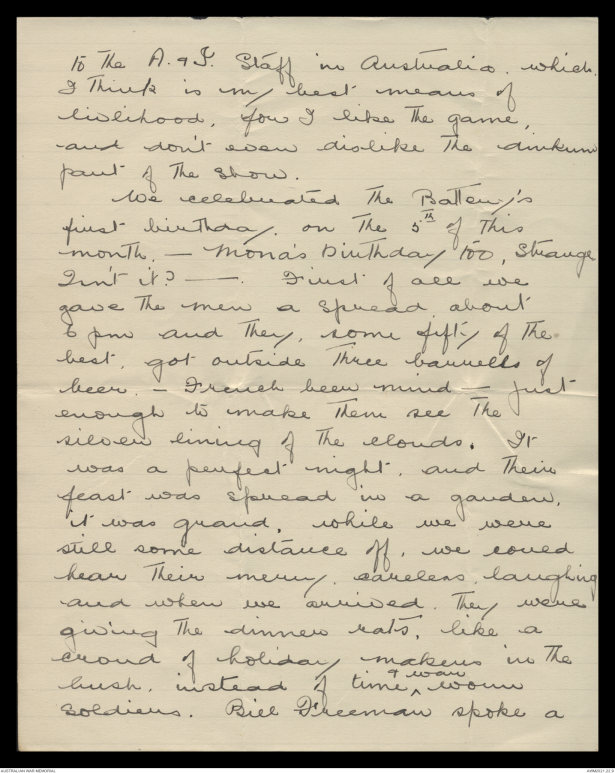 to the A. & I. Staff in Australia. which.
I think is my best means of
livlihood, for I like the game,
and don't even dislike the dinkum
part of the show.
We celebrated the Battery's
first birthday, on the 5th of this
month. — Mona's birthday too, Strange
Isn't it? —. First of all we
gave the men a spread about
6 pm and they, some fifty of the
best, got outside three barrells of
beer. — French beer mind — just
enough to make them see the
silver lining of the clouds. It
was a perfect night, and their
feast was spread in a garden,
it was grand, while we were
still some distance off, we could
hear their merry, careless, laughing
and when we arrived. they were
giving the dinner rats, like a
crowd of holiday makers in the
bush, instead of time & war worn
soldiers. Bill Freeman spoke a
AUSTRALIAN WAR MEMORIAL